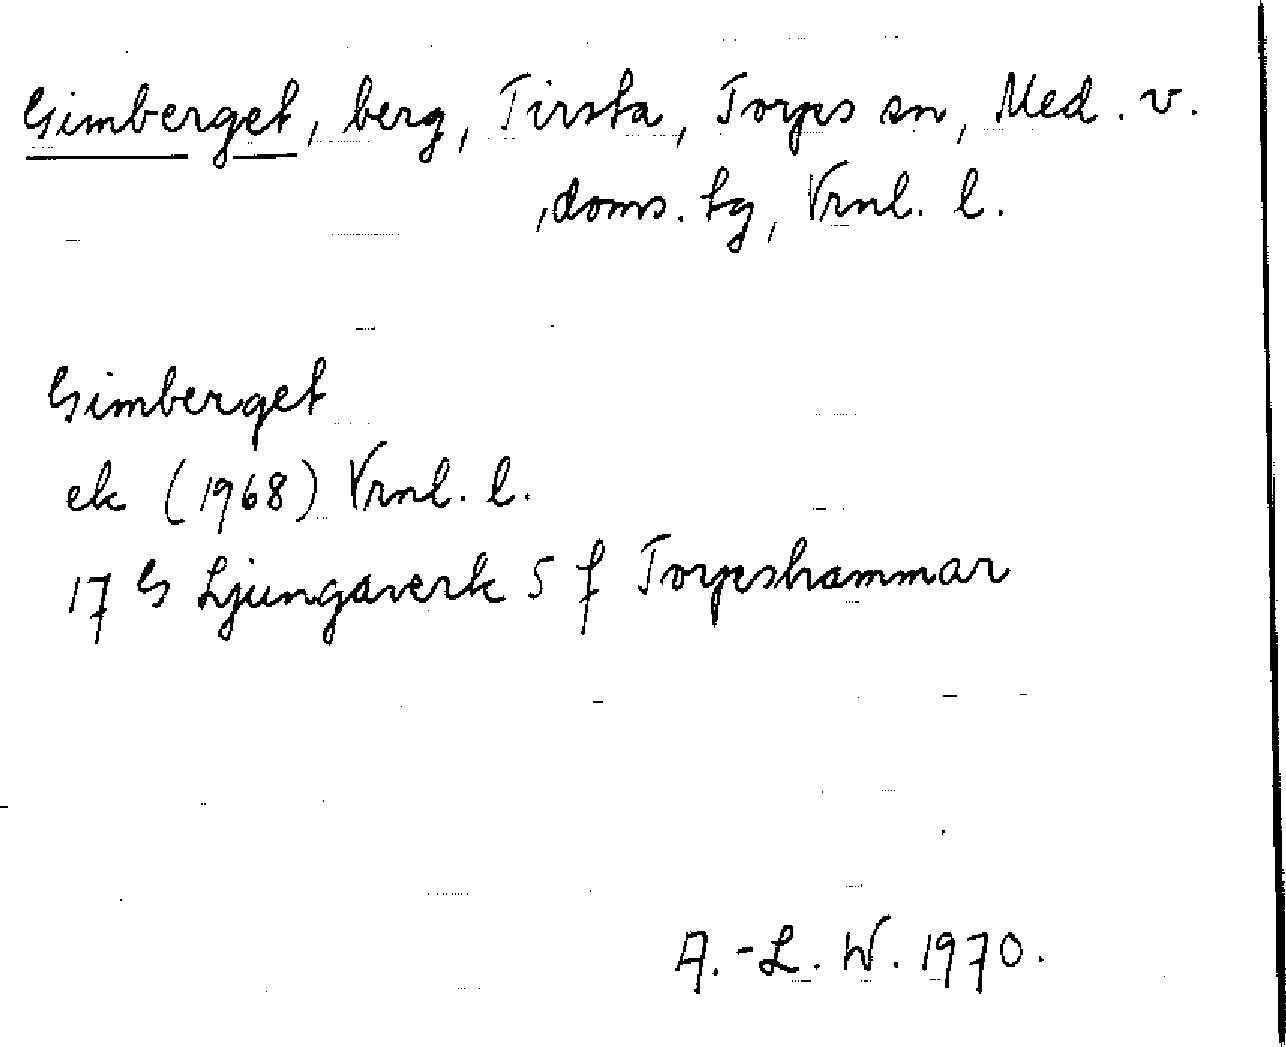 Gimberget, berg, Tirsta, Torps sn, Med. v.
doms. tg, Vrnl. l.
Gimberget
ek (1968) Vrnl. l.
17 G Ljungaverk 5 f Torpshammar
A.-L. W. 1970.